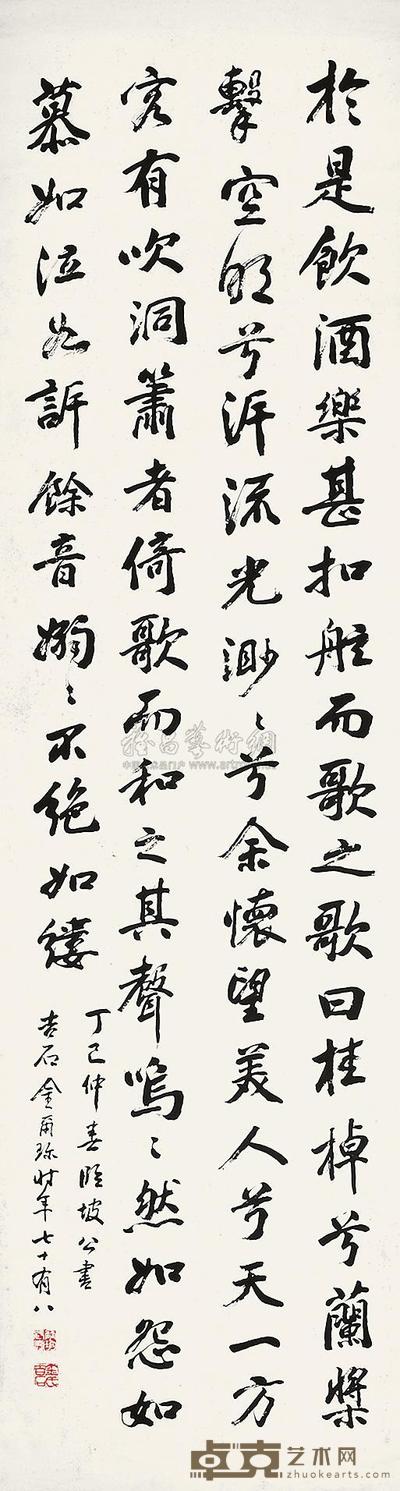 於是飲酒樂甚扣舷而歌之歌曰桂棹兮蘭槳
擊空明兮泝流光渺〻兮余懷望美人兮天一方
客有吹洞簫者倚歌而和之其聲嗚〻然如怨如
慕如泣如訴餘音嫋〻不絕如縷
丁巳仲春臨坡公書
吉石金爾珍時年七十有八
卓克艺术网
zhuokearts.com